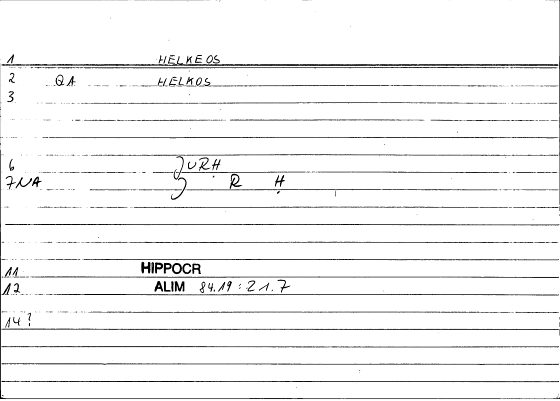 1 HELKEOS
2 QA HELKOS
3
6 URH
7 NA R H
11 HIPPOCR
12 ALIM 84.19 : 21.7
14?